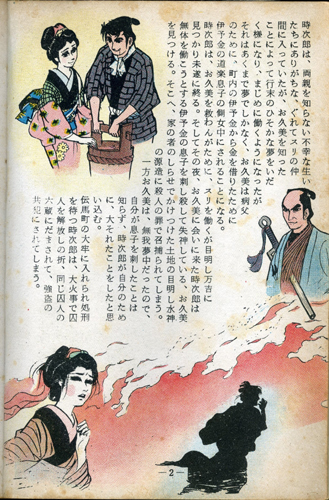 時次郎は、両親を知らない不幸な生い
たちにありがちな、ぐれてスリの仲
間に入っていたが、お久美を知っ
く様になり、まじめに働くようになったが
ことによって行末のひそかな夢をいだ
それはあくまで夢でしかなく、お久美は病父
のために、町内の伊予金から金を借りたために
伊予金の道楽息子の側女中にされることになる。
時次郎は、お久美を救わんがために、スリを働くが目明し万吉に
見つかり未遂に終る。その夜、お久美に会いに来た時次郎は
無体を働こうとする伊予金の息子を刺し殺して失神しているお久美
を見つける。そこへ、家の者のしらせでかけつけた土地の目明し水神
の源造に殺人の罪で召捕られてしまう。
一方お久美は、無我夢中だったので、
自分が息子を刺したことは
知らず、時次郎が自分のため
に、大それたことをしたと思
い込む。
伝馬町の大牢に入れられ処刑
を待つ時次郎は、大火事で囚
人を解放しの折、同じ囚人の
六蔵にだまされて、強盗の
共犯にされてしまう。
—2—